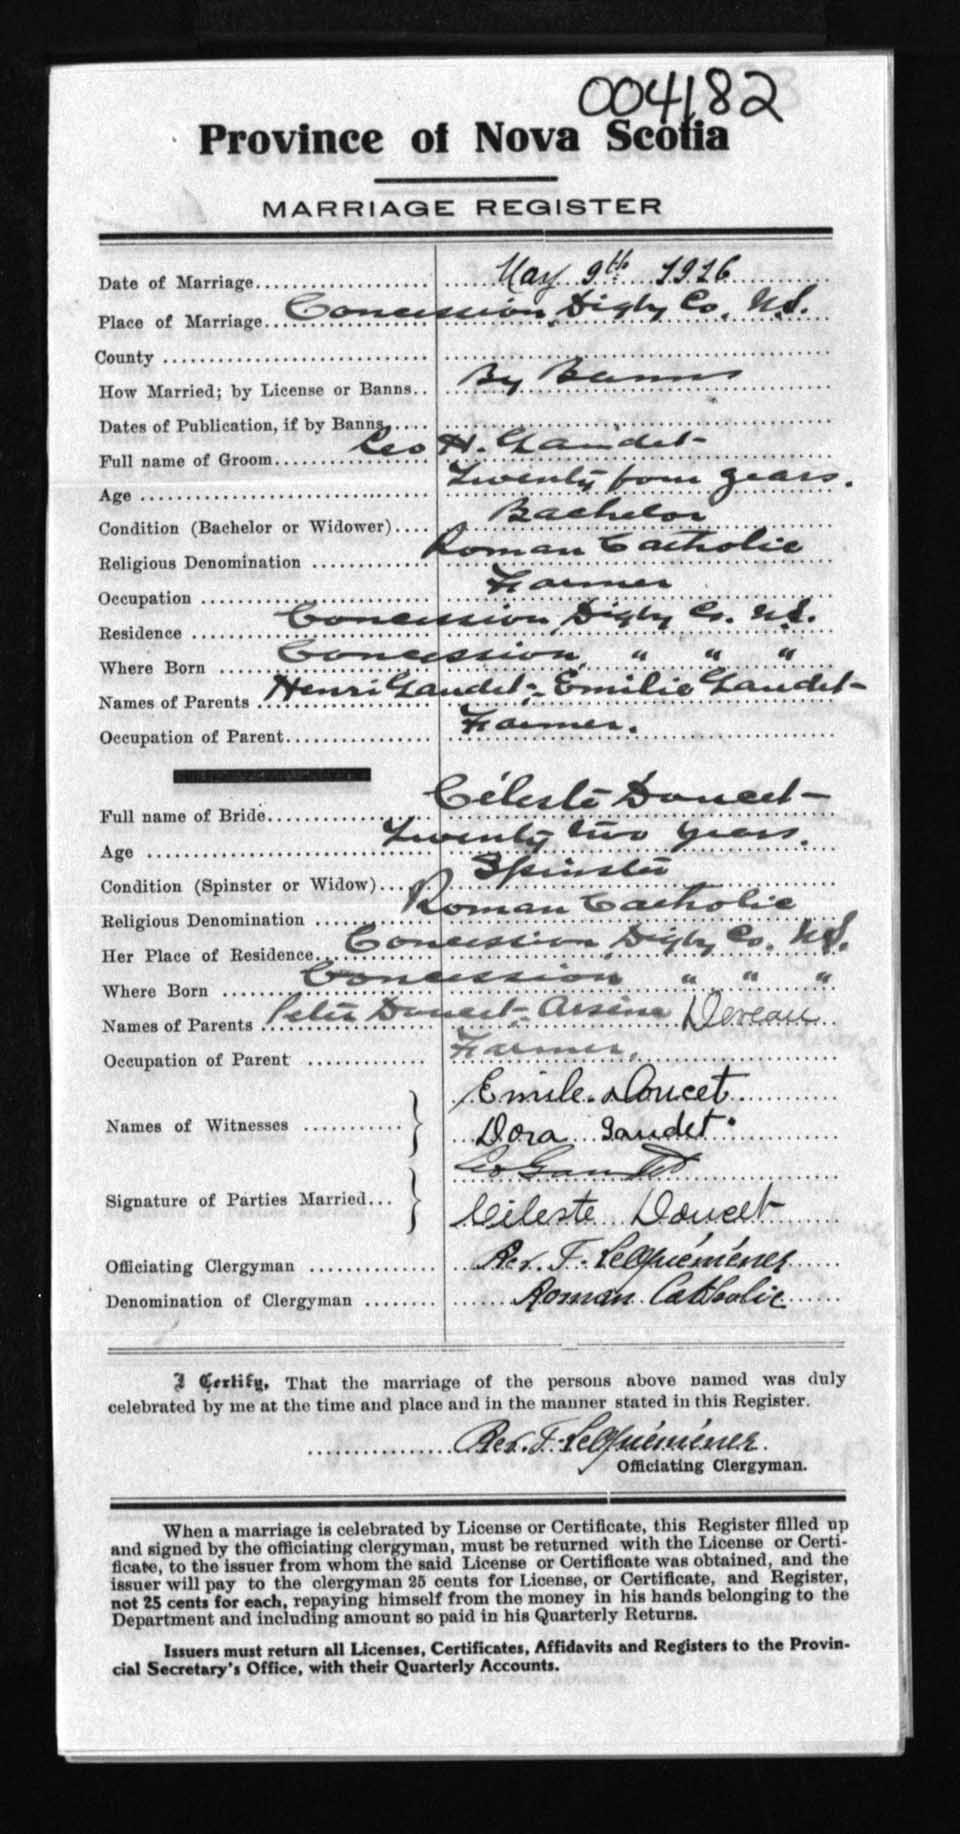 004182
Province of Nova Scotia
MARRIAGE REGISTER
Date of Marriage May 9th 1916
Place of Marriage Concession, Digby Co. N.S.
County
How Married; by License or Banns By Banns
Dates of Publication, if by Banns
Full name of Groom Leo H. Gaudet
Age Twenty four years.
Condition (Bachelor or Widower) Bachelor
Religious Denomination Roman Catholic
Occupation Farmer
Residence Concession, Digby Co. N.S.
Where Born Concession, " " "
Names of Parents Henri Gaudet - Emilie Gaudet
Occupation of Parent Farmer.
Full name of Bride Céleste Doucet
Age Twenty two years.
Condition (Spinster or Widow) Spinster
Religious Denomination Roman Catholic
Her Place of Residence Concession, Digby Co. N.S.
Where Born Concession " " "
Names of Parents Peter Doucet - Arsène Deveau
Occupation of Parent Farmer,
Names of Witnesses Emile Doucet
Dora Gaudet
Signature of Parties Married Leo Gaudet
Céleste Doucet
Officiating Clergyman Rev. F. LeQuéméner
Denomination of Clergyman Roman Catholic
I Certify, That the marriage of the persons above named was duly
celebrated by me at the time and place and in the manner stated in this Register.
Rev. F. LeQuéméner.
Officiating Clergyman.
When a marriage is celebrated by License or Certificate, this Register filled up
and signed by the officiating clergyman, must be returned with the License or Certi-
ficate, to the issuer from whom the said License or Certificate was obtained, and the
issuer will pay to the clergyman 25 cents for License, or Certificate, and Register,
not 25 cents for each, repaying himself from the money in his hands belonging to the
Department and including amount so paid in his Quarterly Returns.
Issuers must return all Licenses, Certificates, Affidavits and Registers to the Provin-
cial Secretary's Office, with their Quarterly Accounts.